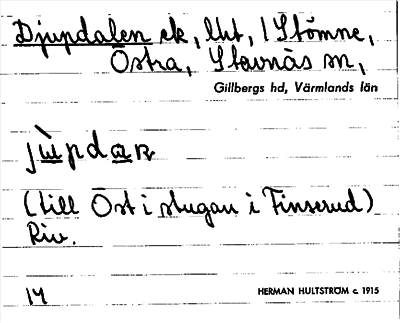 Djupdalen ek, lht, l Stömne,
Östra, Stavnäs sn,
Gillbergs hd, Värmlands län
(till Öst i stugan i Finserud)
Riv.
14
HERMAN HULTSTRÖM c. 1915